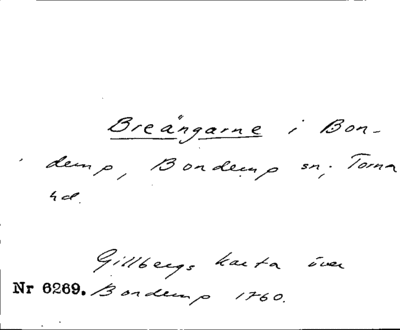 Breängarne i Bon-
derup, Bonderup sn; Torna
hd.
Gillbergs karta över
Nr 6269. Bonderup 1760.